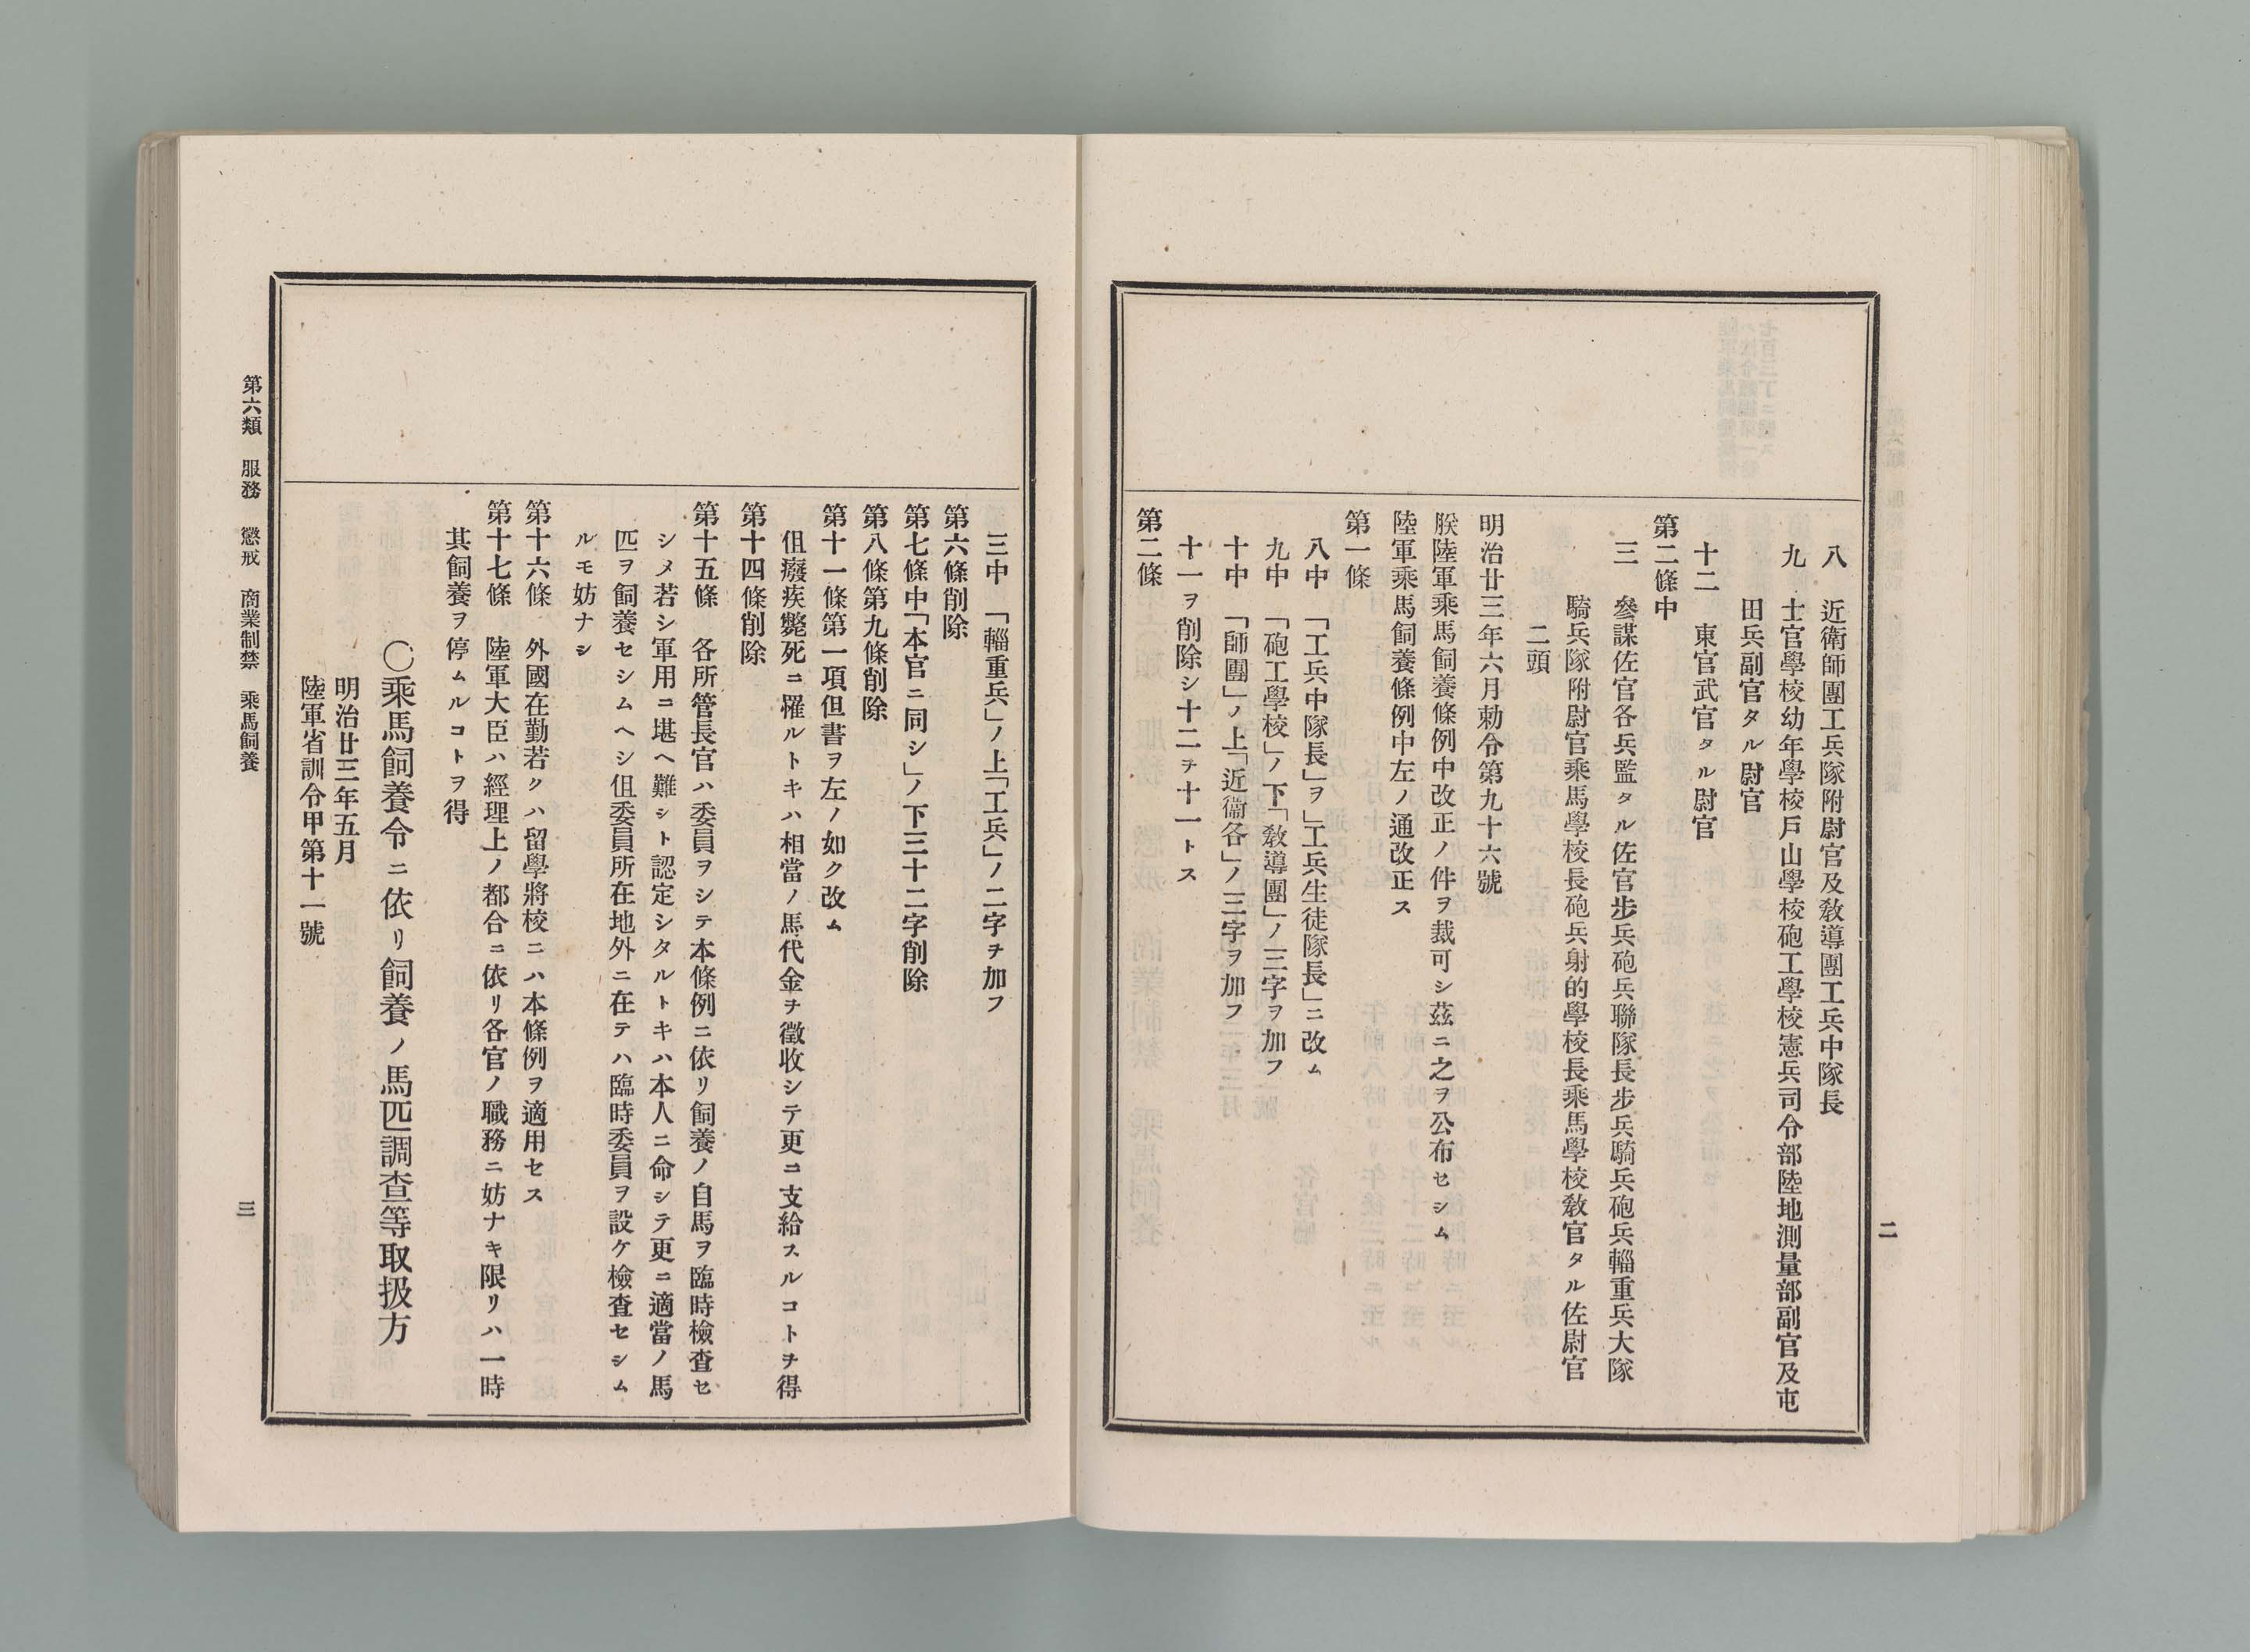 二
八　近衛師團工兵隊附尉官及敎導團工兵中隊長
九　士官學校幼年學校戶山學校砲工學校憲兵司令部陸地測量部副官及屯
田兵副官タル尉官
十二　東官武官タル尉官
第二條中
三　參謀佐官各兵監タル佐官步兵砲兵聯隊長步兵騎兵砲兵輜重兵大隊
騎兵隊附尉官乘馬學校長砲兵射的學校長乘馬學校敎官タル佐尉官
二頭
明治廿三年六月勅令第九十六號
朕陸軍乘馬飼養條例中改正ノ件ヲ裁可シ茲ニ之ヲ公布セシム
陸軍乘馬飼養條例中左ノ通改正ス
第一條
八中　「工兵中隊長」ヲ「工兵生徒隊長」ニ改ム
九中　「砲工學校」ノ下「敎導團」ノ三字ヲ加フ
十中　「師團」ノ上「近衞各」ノ三字ヲ加フ
十一ヲ削除シ十二ヲ十一トス
第二條
三中　「輜重兵」ノ上「工兵」ノ二字ヲ加フ
第六條削除
第七條中「本官ニ同シ」ノ下三十二字削除
第八條第九條削除
第十一條第一項但書ヲ左ノ如ク改ム
伹癈疾斃死ニ罹ルトキハ相當ノ馬代金ヲ徵收シテ更ニ支給スルコトヲ得
第十四條削除
第十五條　各所管長官ハ委員ヲシテ本條例ニ依リ飼養ノ自馬ヲ臨時檢查セ
シメ若シ軍用ニ堪ヘ難シト認定シタルトキハ本人ニ命シテ更ニ適當ノ馬
匹ヲ飼養セシムヘシ伹委員所在地外ニ在テハ臨時委員ヲ設ケ檢查セシム
ルモ妨ナシ
第十六條　外國在勤若クハ留學將校ニハ本條例ヲ適用セス
第十七條　陸軍大臣ハ經理上ノ都合ニ依リ各官ノ職務ニ妨ナキ限リハ一時
其飼養ヲ停ムルコトヲ得
〇乘馬飼養令ニ依リ飼養ノ馬匹調查等取扱方
明治廿三年五月
陸軍省訓令甲第十一號
第六類　服務　懲戒　商業制禁　乘馬飼養
三